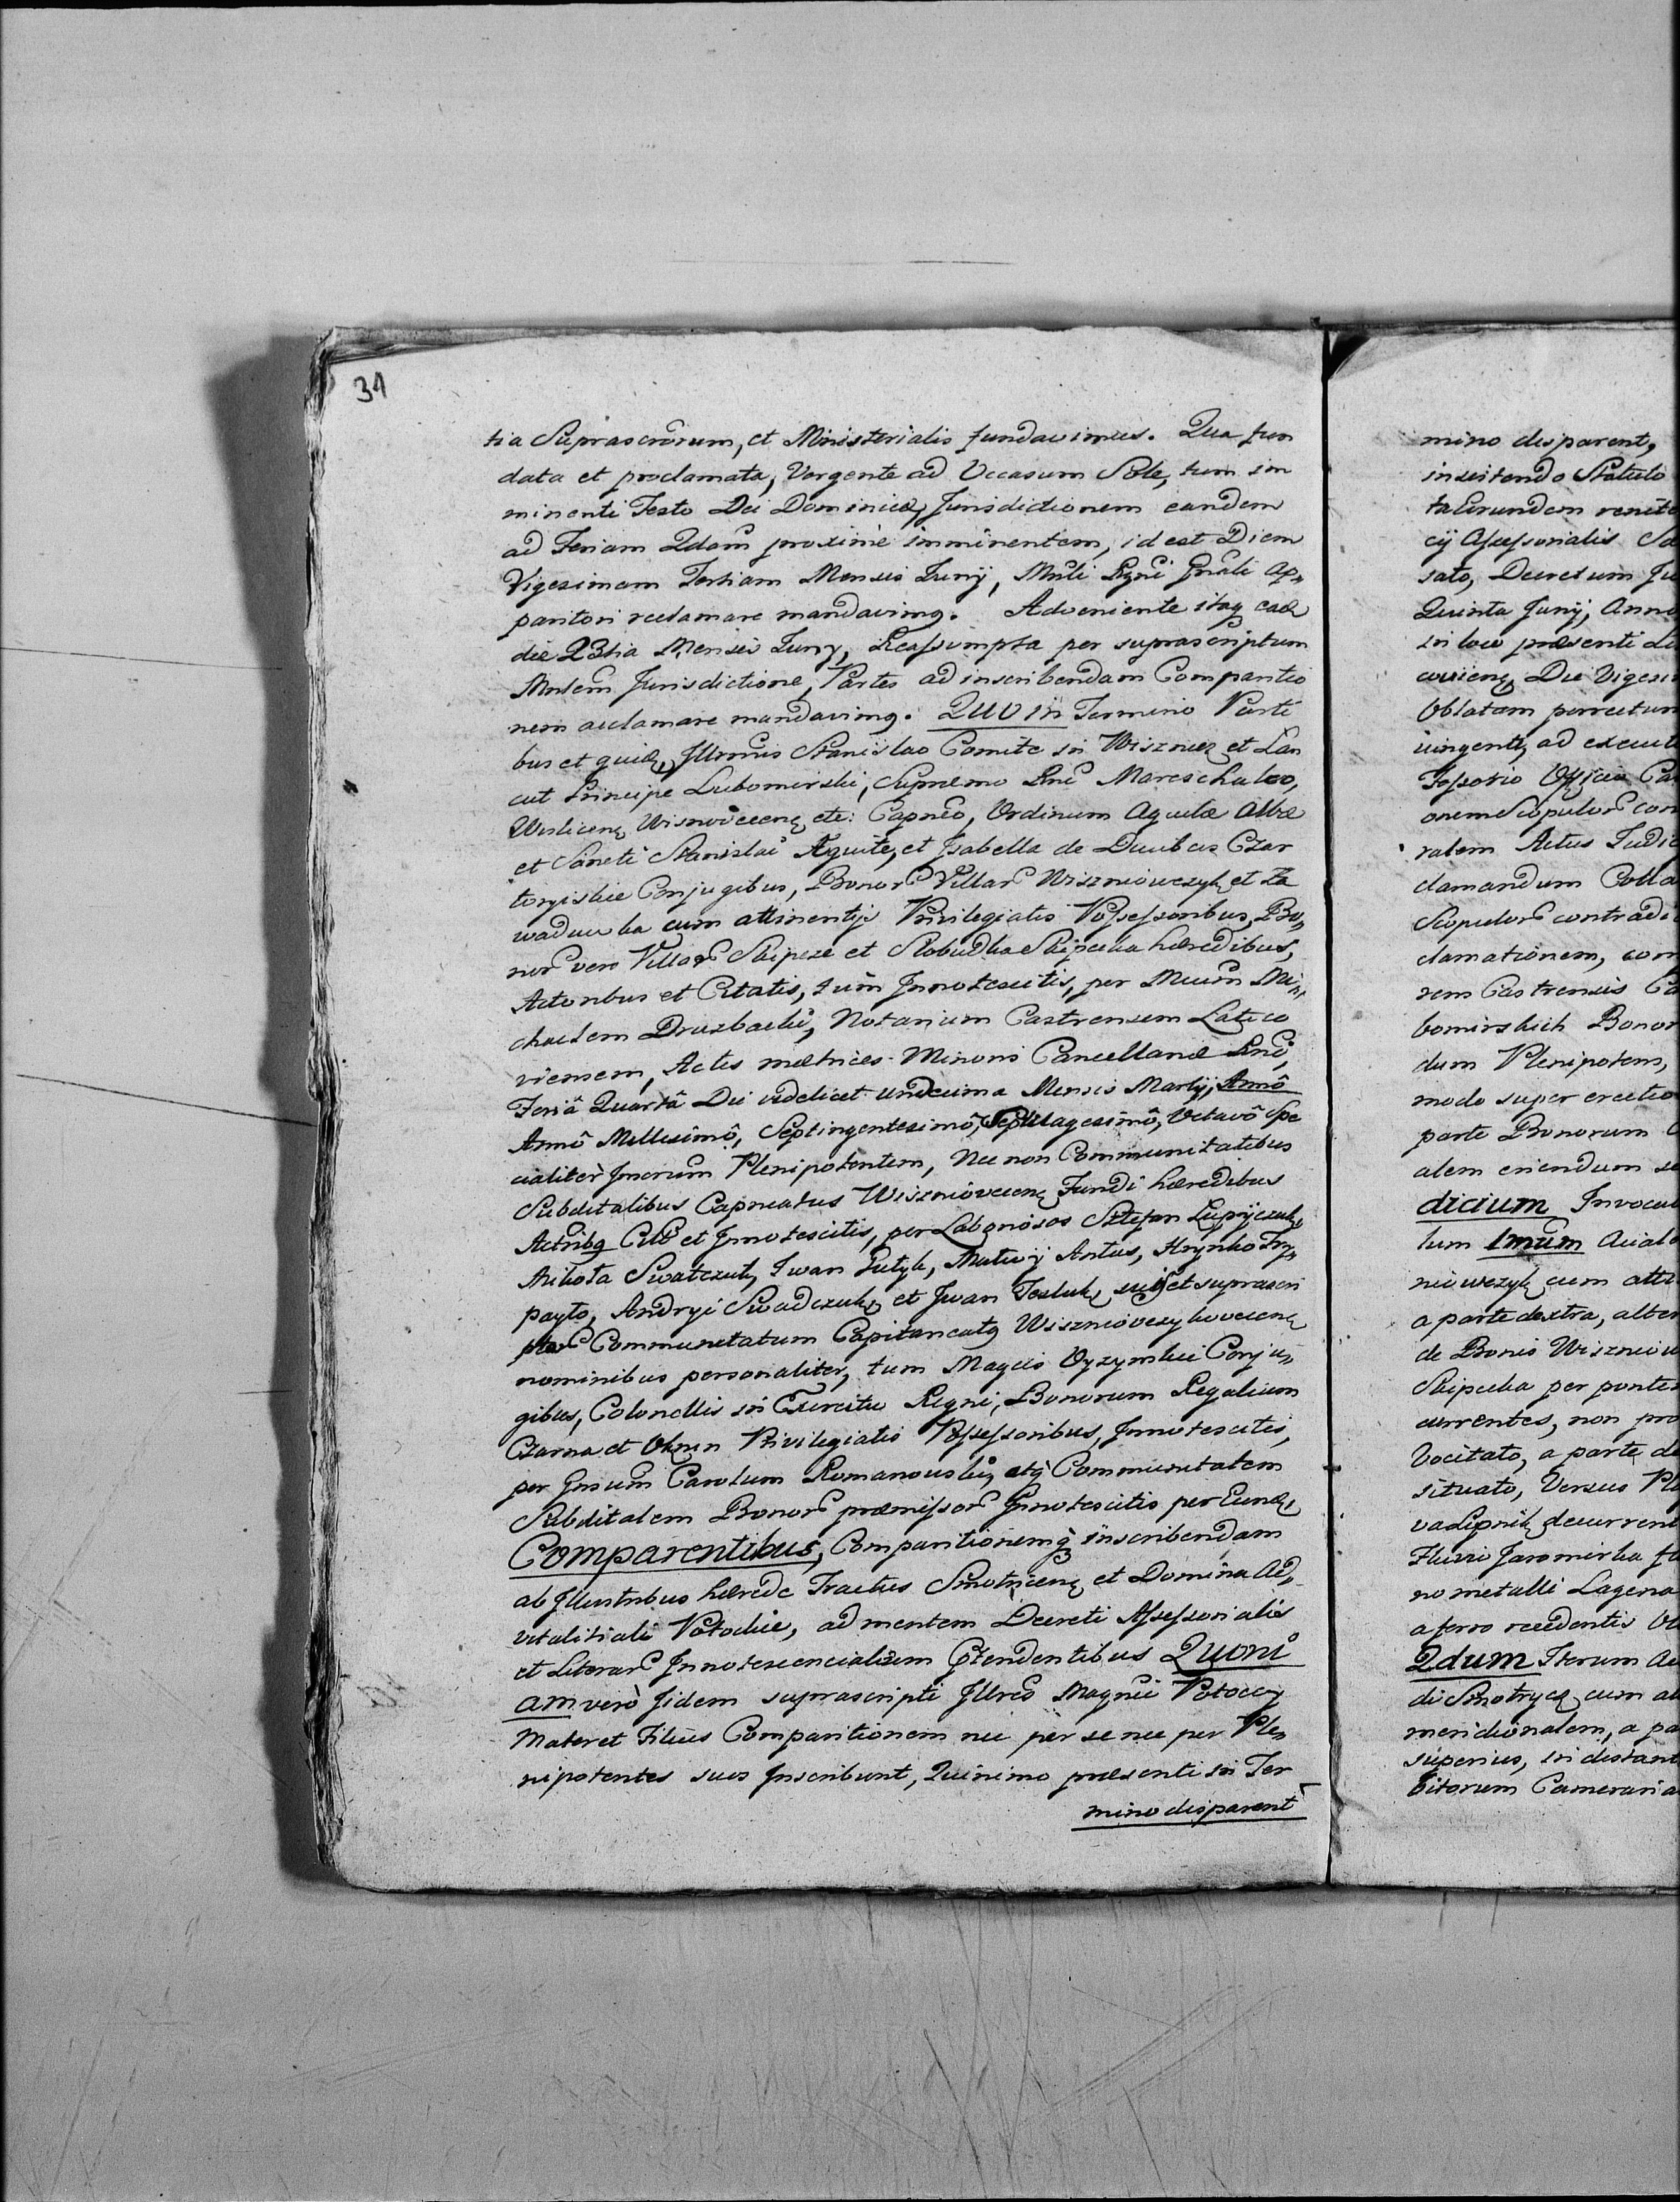 31
tia Suprascrorum, et Ministerialis fundavimus. Qua fun
data et proclamata, Vergente ad Occasum Sole, tum im
minenti Festo Dei Dominicæ, Jurisdictionem eandem
ad Feriam 2dam proximè imminentem, id est Diem
Vigesimam Tertiam Mensis Junij, Mnli Regni Gnrali ap„
paritori reclamare mandavimq. Adveniente itaq eadē
die 23tia Mensis Juny, Reassumpta per suprascriptum
Mnlem Jurisdictione, Partes ad inscribendam Comparitio
nem acclamare mandavimq. QUO in Termino Parti
bus et quidē, Jllrmis Stanislao Comite in Wisznicz et Lan
cut Principe Lubomirski, Supremo Rni Mareschalco,
Wislicenē Wisnioveceenē etc: Capneo, Ordinum Aquilæ Albæ
et Sancti Stanislai Equite, et Jsabella de Ducibus Czar
toryiskie Conjugibus, Bonor Villar Wiszniowczyk et Za
waduwka cum attinentijs Privilegiatis Possessoribus, Bo„
nor vero Villar Skipcze et Slobudka Skipecka hæredibus,
Actoribus et Citatis, tum Jnnotescitis, per Mcum Mi„
chaelem Druzbacki, Notarium Castrensem Latico
viensem, Actis metrices Minoris Cancellariæ Rni,
Feriâ Quartâ Die videlicet undecima Mensis Martij, Annô
Annô Millesimô, Septingentesimô, Septuagesimô, Octavô Spe
cialitèr Jnorum Plenipotentem, Nec non Communitatibus
Subditalibus Capneatus Wiszniovecenē Fundi hæredibus
Actribq Citis et Jnnotescitis, per Laboriosos Sztefan Lupijczuk,
Mikola Swatczuk, Iwan Gutyk, Matwij Antus, Hrynko Try„
payto, Andryi Swadczuk, et Jwan Tesluk, suis et suprascri
ptar Communitatum Capitaneatq Wiszniovczykovecenē
nominibus personaliter, tum Magcis Ozyzymkie Conju„
gibus, Colonellis in Exercitu Regni, Bonorum Regalium
Czarna et Oknin Privilegiatis Possessoribus, Jnnotescitis,
per Gnsum Carolum Romanouski, atq Communitatem
Subditalem Bonor præmissor Jnnotescitis per Eundē,
Comparentibus, Comparitionemq inscribendam
ab Jllustribus hærede Tractus Smotricenē et Domina Ad„
vitalitiali Potockie, ad mentem Decreti Assessorialis
et Literar Jnnotescencialium Ctendentibus QUONI
AM verò Jidem suprascripti Jllres Magnci Potoccy
Mater et Filius Comparitionem nec per se nec per Ple„
nipotentes suos Jnscribunt, Quinimo præsenti in Ter
mino disparent
mino disparent,
insistendo Statuto
talirundem
cij Assessorialis
sato, Decretum Ju
Quinta Junij, Anno
in loco præsenti
Die Vigesi
Oblatam porrectum
ad execut
Officii Ca
Scopulor con
ralem Actus Judic
clamandum Colla
Scopulor contradi
clamationem, com
rem Castrensis Ca
bomirskich Bonor
dum Plenipotem,
modo super erectio
parte Bonorum
alem eriendum se
dicium Jnvocat
lum 1mum Acial
niowczyk cum atti
a parte dextra, alter
de Bonis Wiszniow
Skipecka per ponte
currentes, non pro
Vocitato, a parte de
situato, Versus
va Lipnik decurrent
Fluvii Jaromirka
no metalli Lagena
a ferro recedentis
2dum Iterum Ac
di Smotrycz cum at
meridionalem, a pa
superius, in distant
bitorum Cameraria